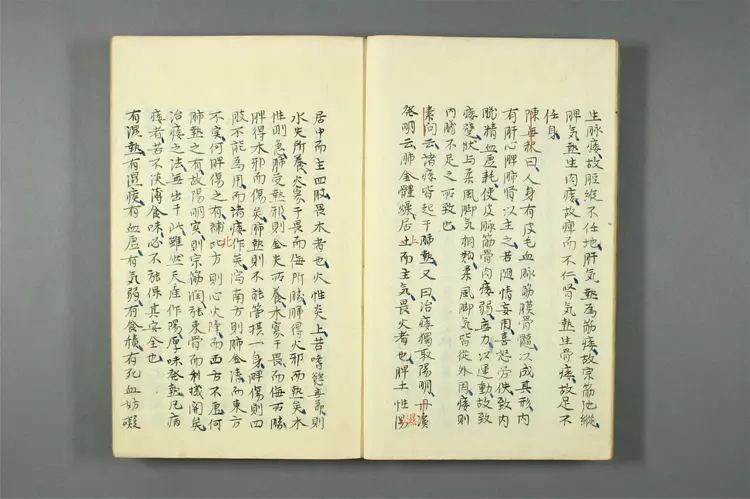 生脉痿故脛縱不任地肝気熱為筋痿故宗筋弛縱
脾気熱生肉痿故痺而不仁腎気熱生骨痿故足不
任身
陳無択曰人身有皮毛血脉筋膜骨髓以成其形内
有肝心脾肺腎以主之若随情妄用喜怒労佚致内
脱精血虚耗使皮脉筋骨肉痿弱無力以運動故致
痿躄状与柔風脚気相類柔風脚気皆從外因痿則
内臓不足之所致也
素問云諸痿皆起于肺熱又曰治痿獨取陽明丹溪
發明云肺金體燥居上而主気畏火者也脾土性湿
居中而主四肢畏木者也火性炎上若嗜慾無節則
水失所養火寡于畏而侮所勝肺得火邪而熱矣木
性剛急肺受熱邪則金失所養木寡于畏而侮所勝
脾得木邪而傷矣肺熱則不能管摂一身脾傷則四
肢不能為用而諸痿作矣瀉南方則肺金清而東方
不実何脾傷之有補北方則心火降而西方不虚何
肺熱之有故陽明実則宗筋潤強束骨而利機関矣
治痿之法無出于此雖然天産作陽厚味發熱凡病
痿者若不淡薄食味必不能保其安全也
有濕熱有濕痰有血虚有気弱有食積有死血妨礙